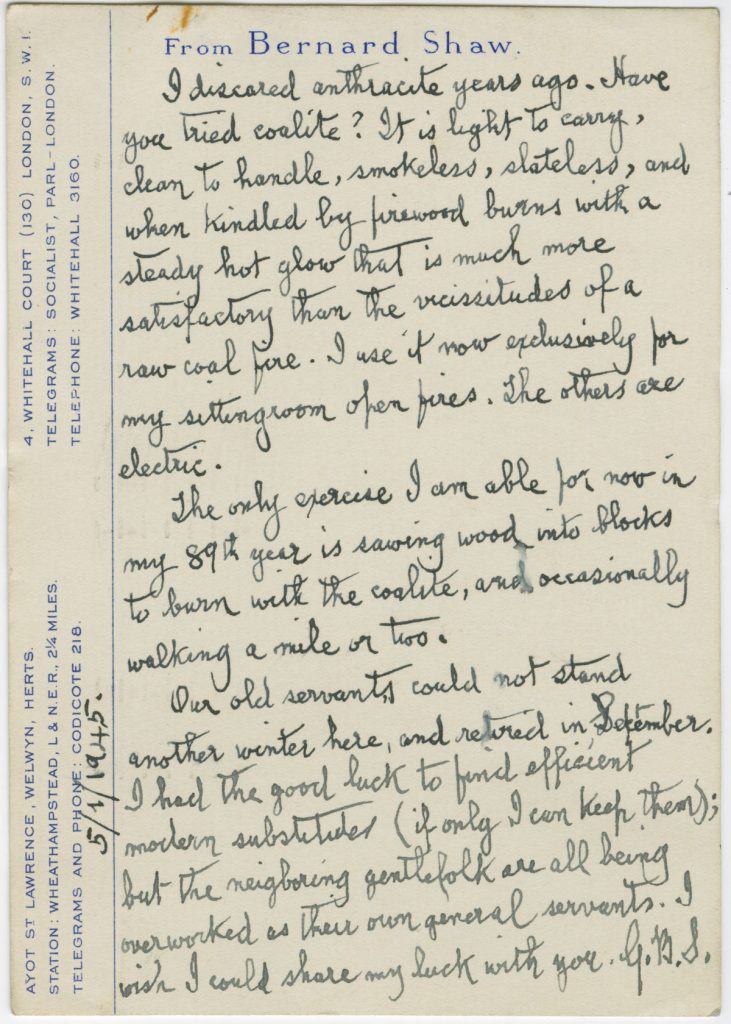 From Bernard Shaw.
I discared anthracite years ago. Have
you tried coalite? It is light to carry,
clean to handle, smokeless, slateless, and
when kindled by firewood burns with a
steady hot glow that is much more
satisfactory than the vicissitudes of a
raw coal fire. I use it now exclusively for
my sittingroom open fires. The others are
electric.
The only exercise I am able for now in
my 89th year is sawing wood into blocks
to burn with the coalite, and occasionally
walking a mile or two.
Our old servants could not stand
another winter here, and retired in September.
I had the good luck to find efficient
modern substitutes (if only I can keep them);
but the neigboring gentlefolk are all being
overworked as their own general servants. I
wish I could share my luck with you. G.B.S.
4, WHITEHALL COURT (130) LONDON, S.W.1.
TELEGRAMS: SOCIALIST, PARL-LONDON.
TELEPHONE: WHITEHALL 3160.
AYOT ST LAWRENCE, WELWYN, HERTS.
STATION: WHEATHAMPSTEAD, L & N.E.R., 2¼ MILES.
TELEGRAMS AND PHONE: CODICOTE 218.
5/1/1945.